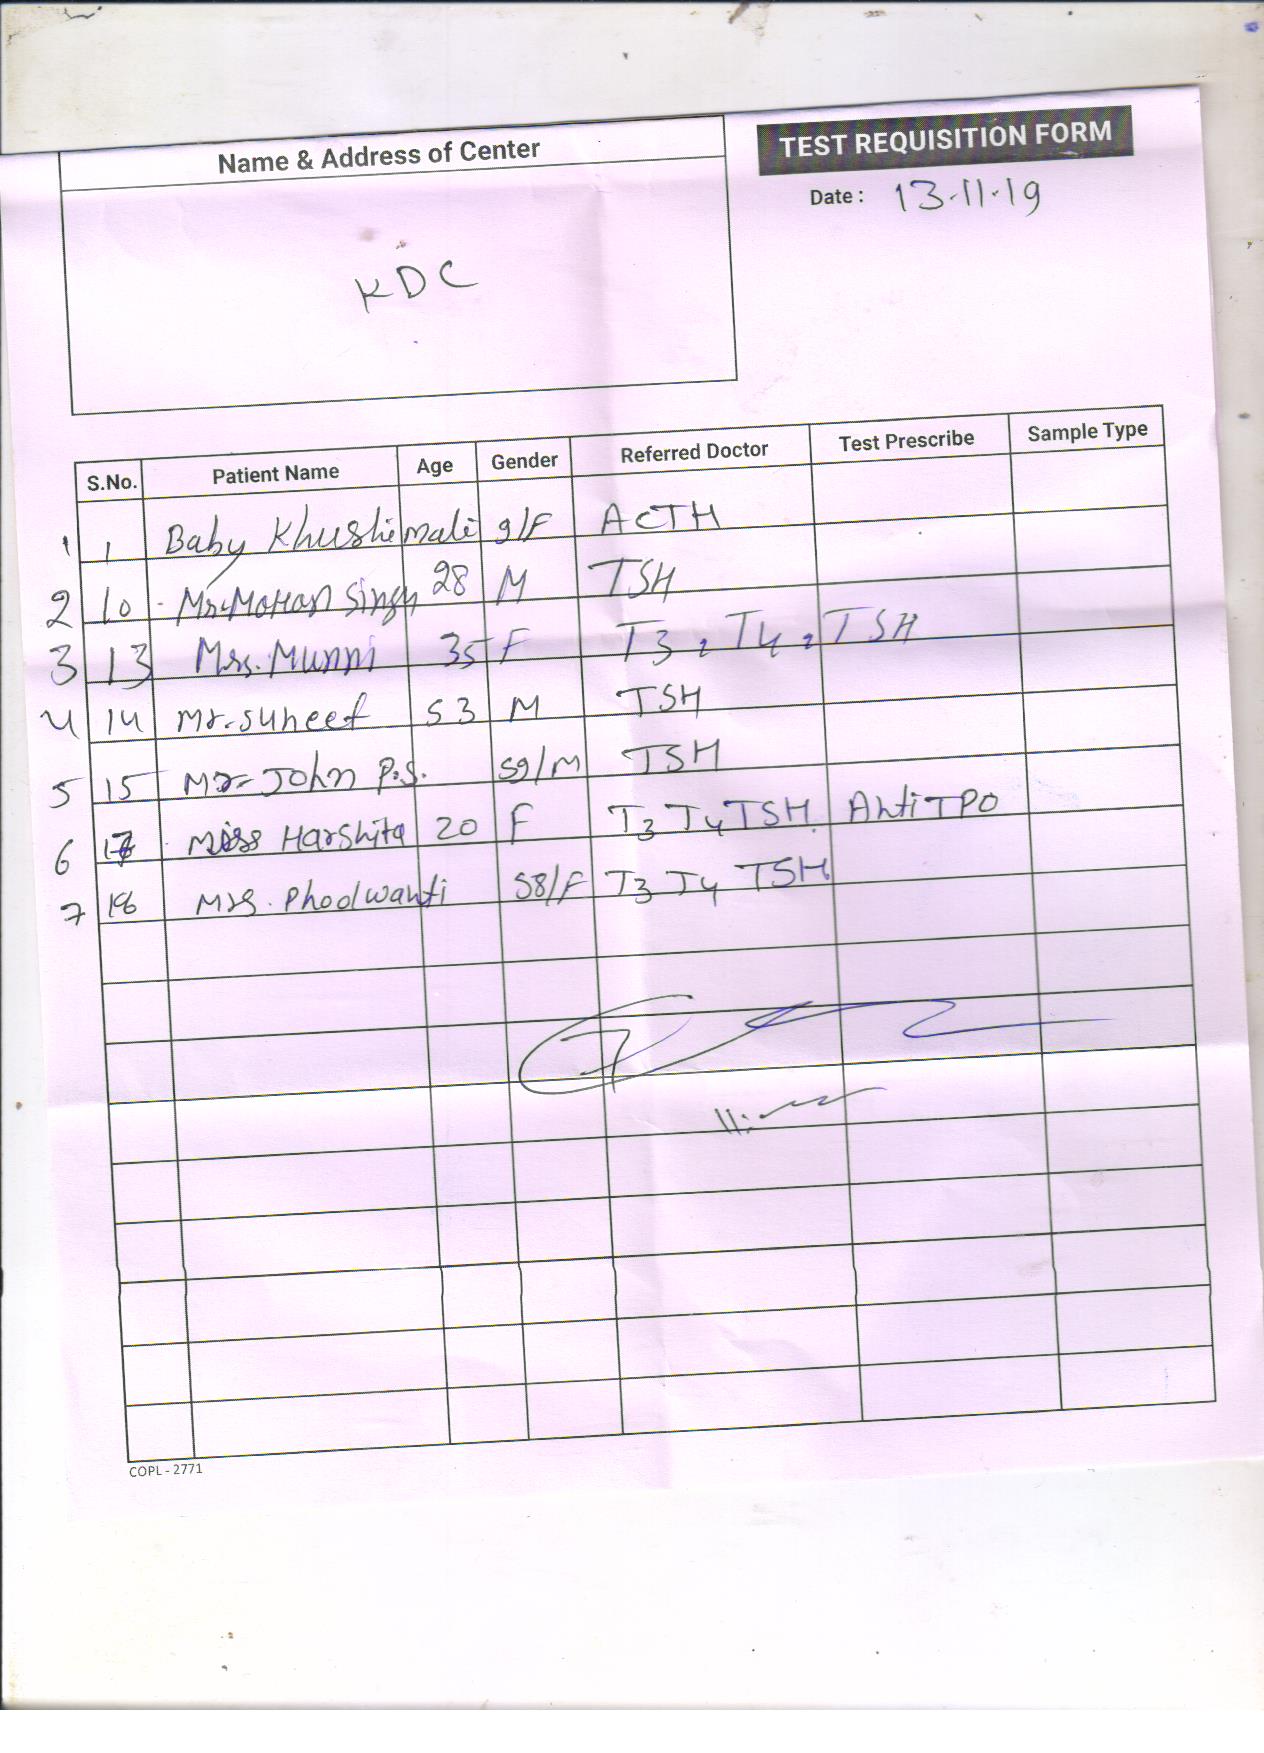 Name & Address of Center
TEST REQUISITION FORM
Date : 13.11.19
KDC
S.No. Patient Name Age Gender Referred Doctor Test Prescribe Sample Type
1 1 Baby Khushi Mali 9/F ACTH
2 10 Mr. Mohan Singh 28 M TSH
3 13 Mrs. Munni 35 F T3, T4, TSH
4 14 Mr. Suneet 53 M TSH
5 15 Mr. John P.S. 59/M TSH
6 17 Miss Harshita 20 F T3 T4 TSH. Anti TPO
7 18 Mrs. Phoolwanti 58/F T3 T4 TSH
7
COPL - 2771